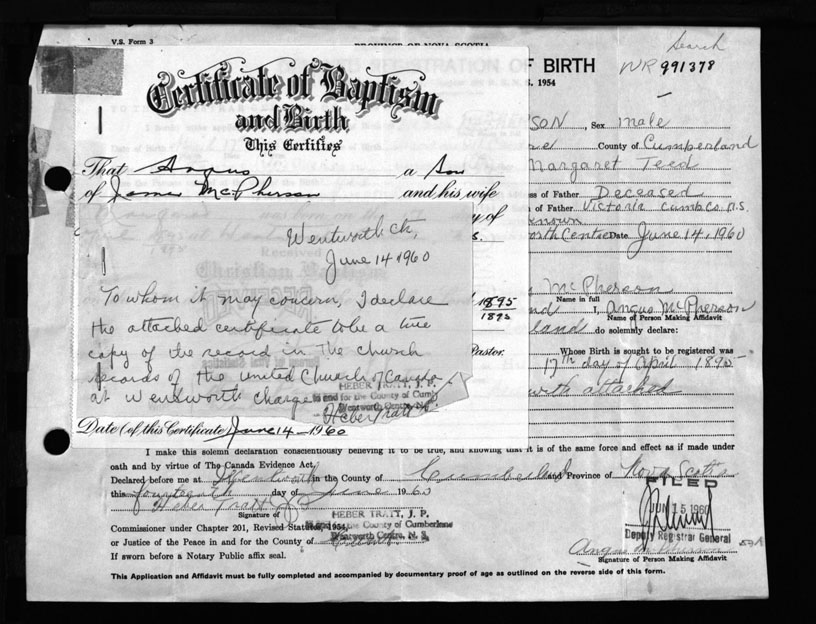 V.S. Form 3
PROVINCE OF NOVA SCOTIA
REGISTRATION OF BIRTH
1954
Search
NR 991378
Certificate of Baptism
and Birth
This Certifies
That Angus a Son
of James McPherson and his wife
SON, Sex male
County of Cumberland
Margaret Teed
of Father Deceased
of Father Victoria Cumb Co. N.S.
Centre Date June 14, 1960
Wentworth Ch,
June 14 1960
To whom it may concern, I declare
the attached certificate to be a true
copy of the record in the church
records of the United Church of Canada
at Wentworth charge
HEBER TRATT, J. P.
in and for the County of Cumb
Wentworth Centre, N.
Heber Tratt
1895
1893
Pastor.
Date (of this Certificate) June 14 - 1960
McPherson
Name in full
I, Angus McPherson
Name of Person Making Affidavit
do solemnly declare:
Whose Birth is sought to be registered was
17th day of April 1895
attached
I make this solemn declaration conscientiously believing it to be true, and knowing that it is of the same force and effect as if made under
oath and by virtue of The Canada Evidence Act.
Declared before me at Wentworth in the County of Cumberland and Province of Nova Scotia
this fourteenth day of June 1960
Heber Tratt J P
Signature of
HEBER TRATT, J. P.
Commissioner under Chapter 201, Revised Statutes, 1954,
County of Cumberland
or Justice of the Peace in and for the County of
Wentworth Centre, N. S.
If sworn before a Notary Public affix seal.
FILED
JUN 15 1960
Deputy Registrar General
Angus McPherson
Signature of Person Making Affidavit
This Application and Affidavit must be fully completed and accompanied by documentary proof of age as outlined on the reverse side of this form.